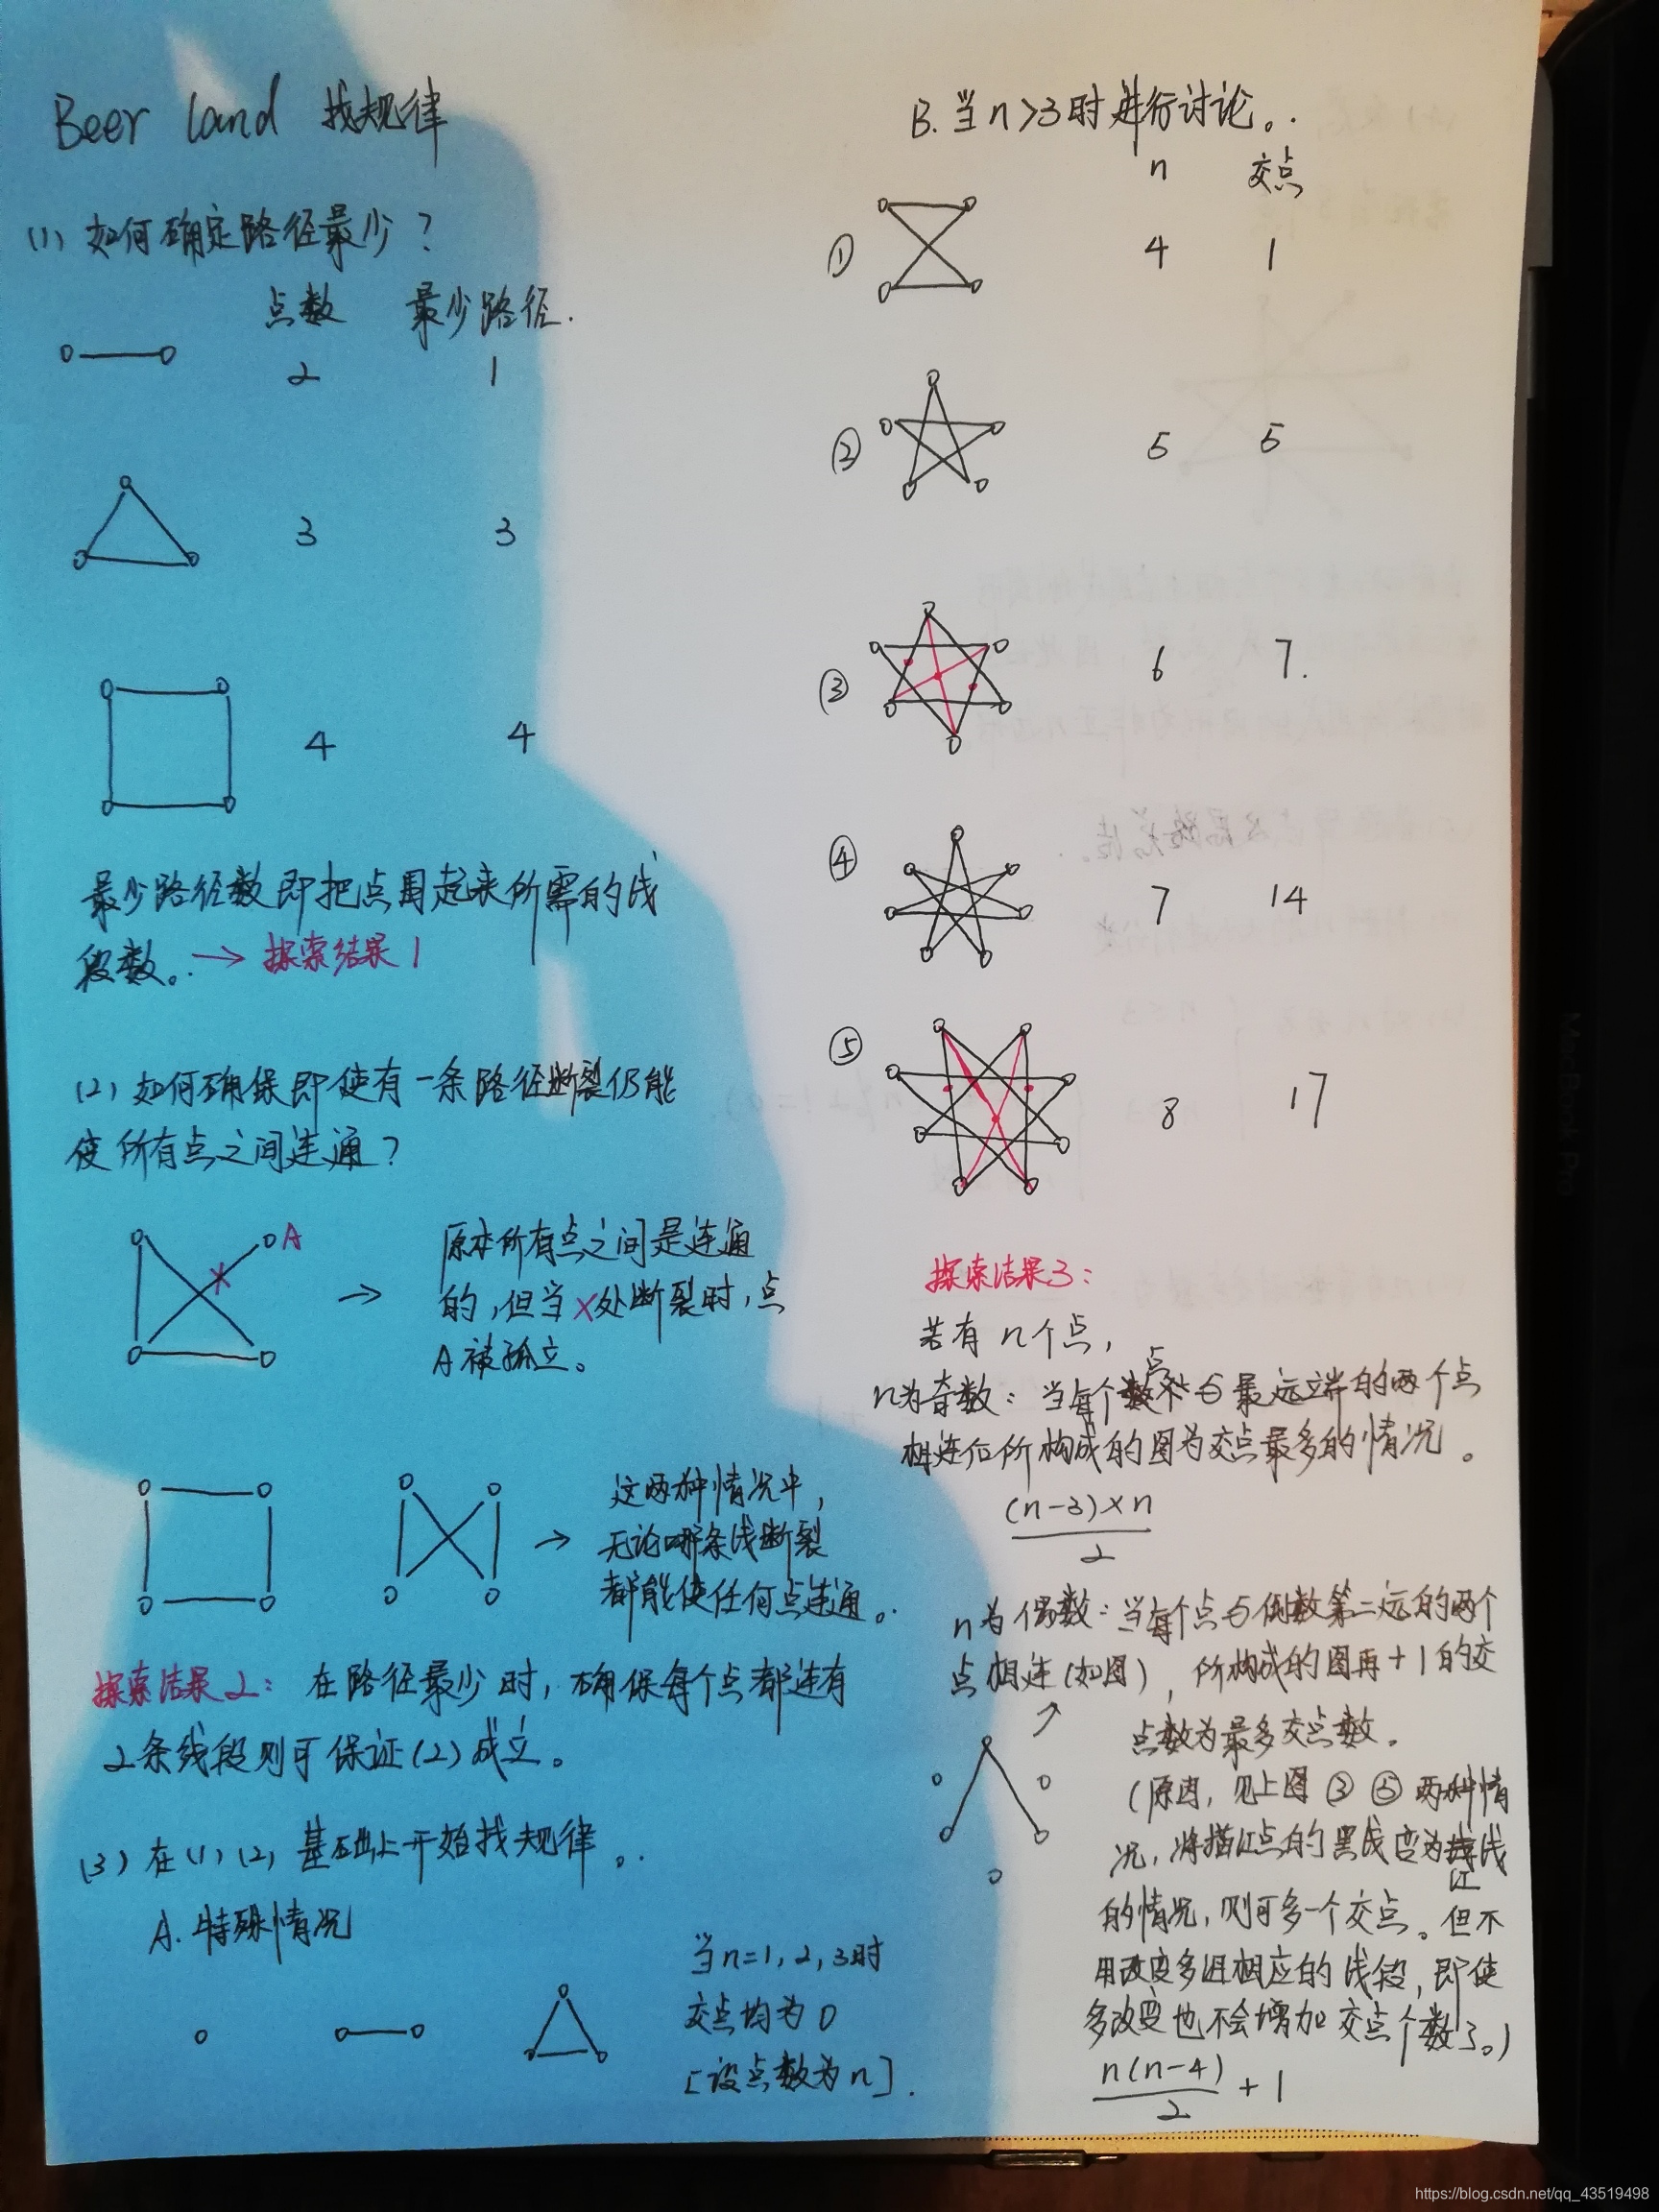 Beer land 找规律
(1) 如何确定路径最少?
点数 最少路径.
2 1
3 3
4 4
最少路径数即把点围起来所需的线
段数。→ 探索结果1
(2) 如何确保即使有一条路径断裂仍能
使所有点之间连通?
A
→ 原本所有点之间是连通
的,但当X处断裂时,点
A被孤立。
→ 这两种情况中,
无论哪条线断裂
都能使任何点连通。
探索结果2: 在路径最少时,确保每个点都连有
2条线段则可保证(2)成立。
(3) 在(1)(2)基础上开始找规律。
A. 特殊情况
当n=1,2,3时
交点均为0
[设点数为n].
B. 当n>3时进行讨论。
n 交点
① 4 1
② 5 5
③ 6 7.
④ 7 14
⑤ 8 17
探索结果3:
若有n个点,
n为奇数: 当每个点与最远端的两个点
相连后所构成的图为交点最多的情况。
(n-3)×n
2
n为偶数: 当每个点与倒数第二远的两个
点相连(如图), 所构成的图再+1的交
点数为最多交点数。
(原因,见上图③⑤两种情
况,将描红点的黑线变为红线
的情况,则可多一个交点。但不
用改变多组相应的线段,即使
多改变也不会增加交点个数了。)
n(n-4)
2
+1
MacBook Pro
https://blog.csdn.net/qq_43519498